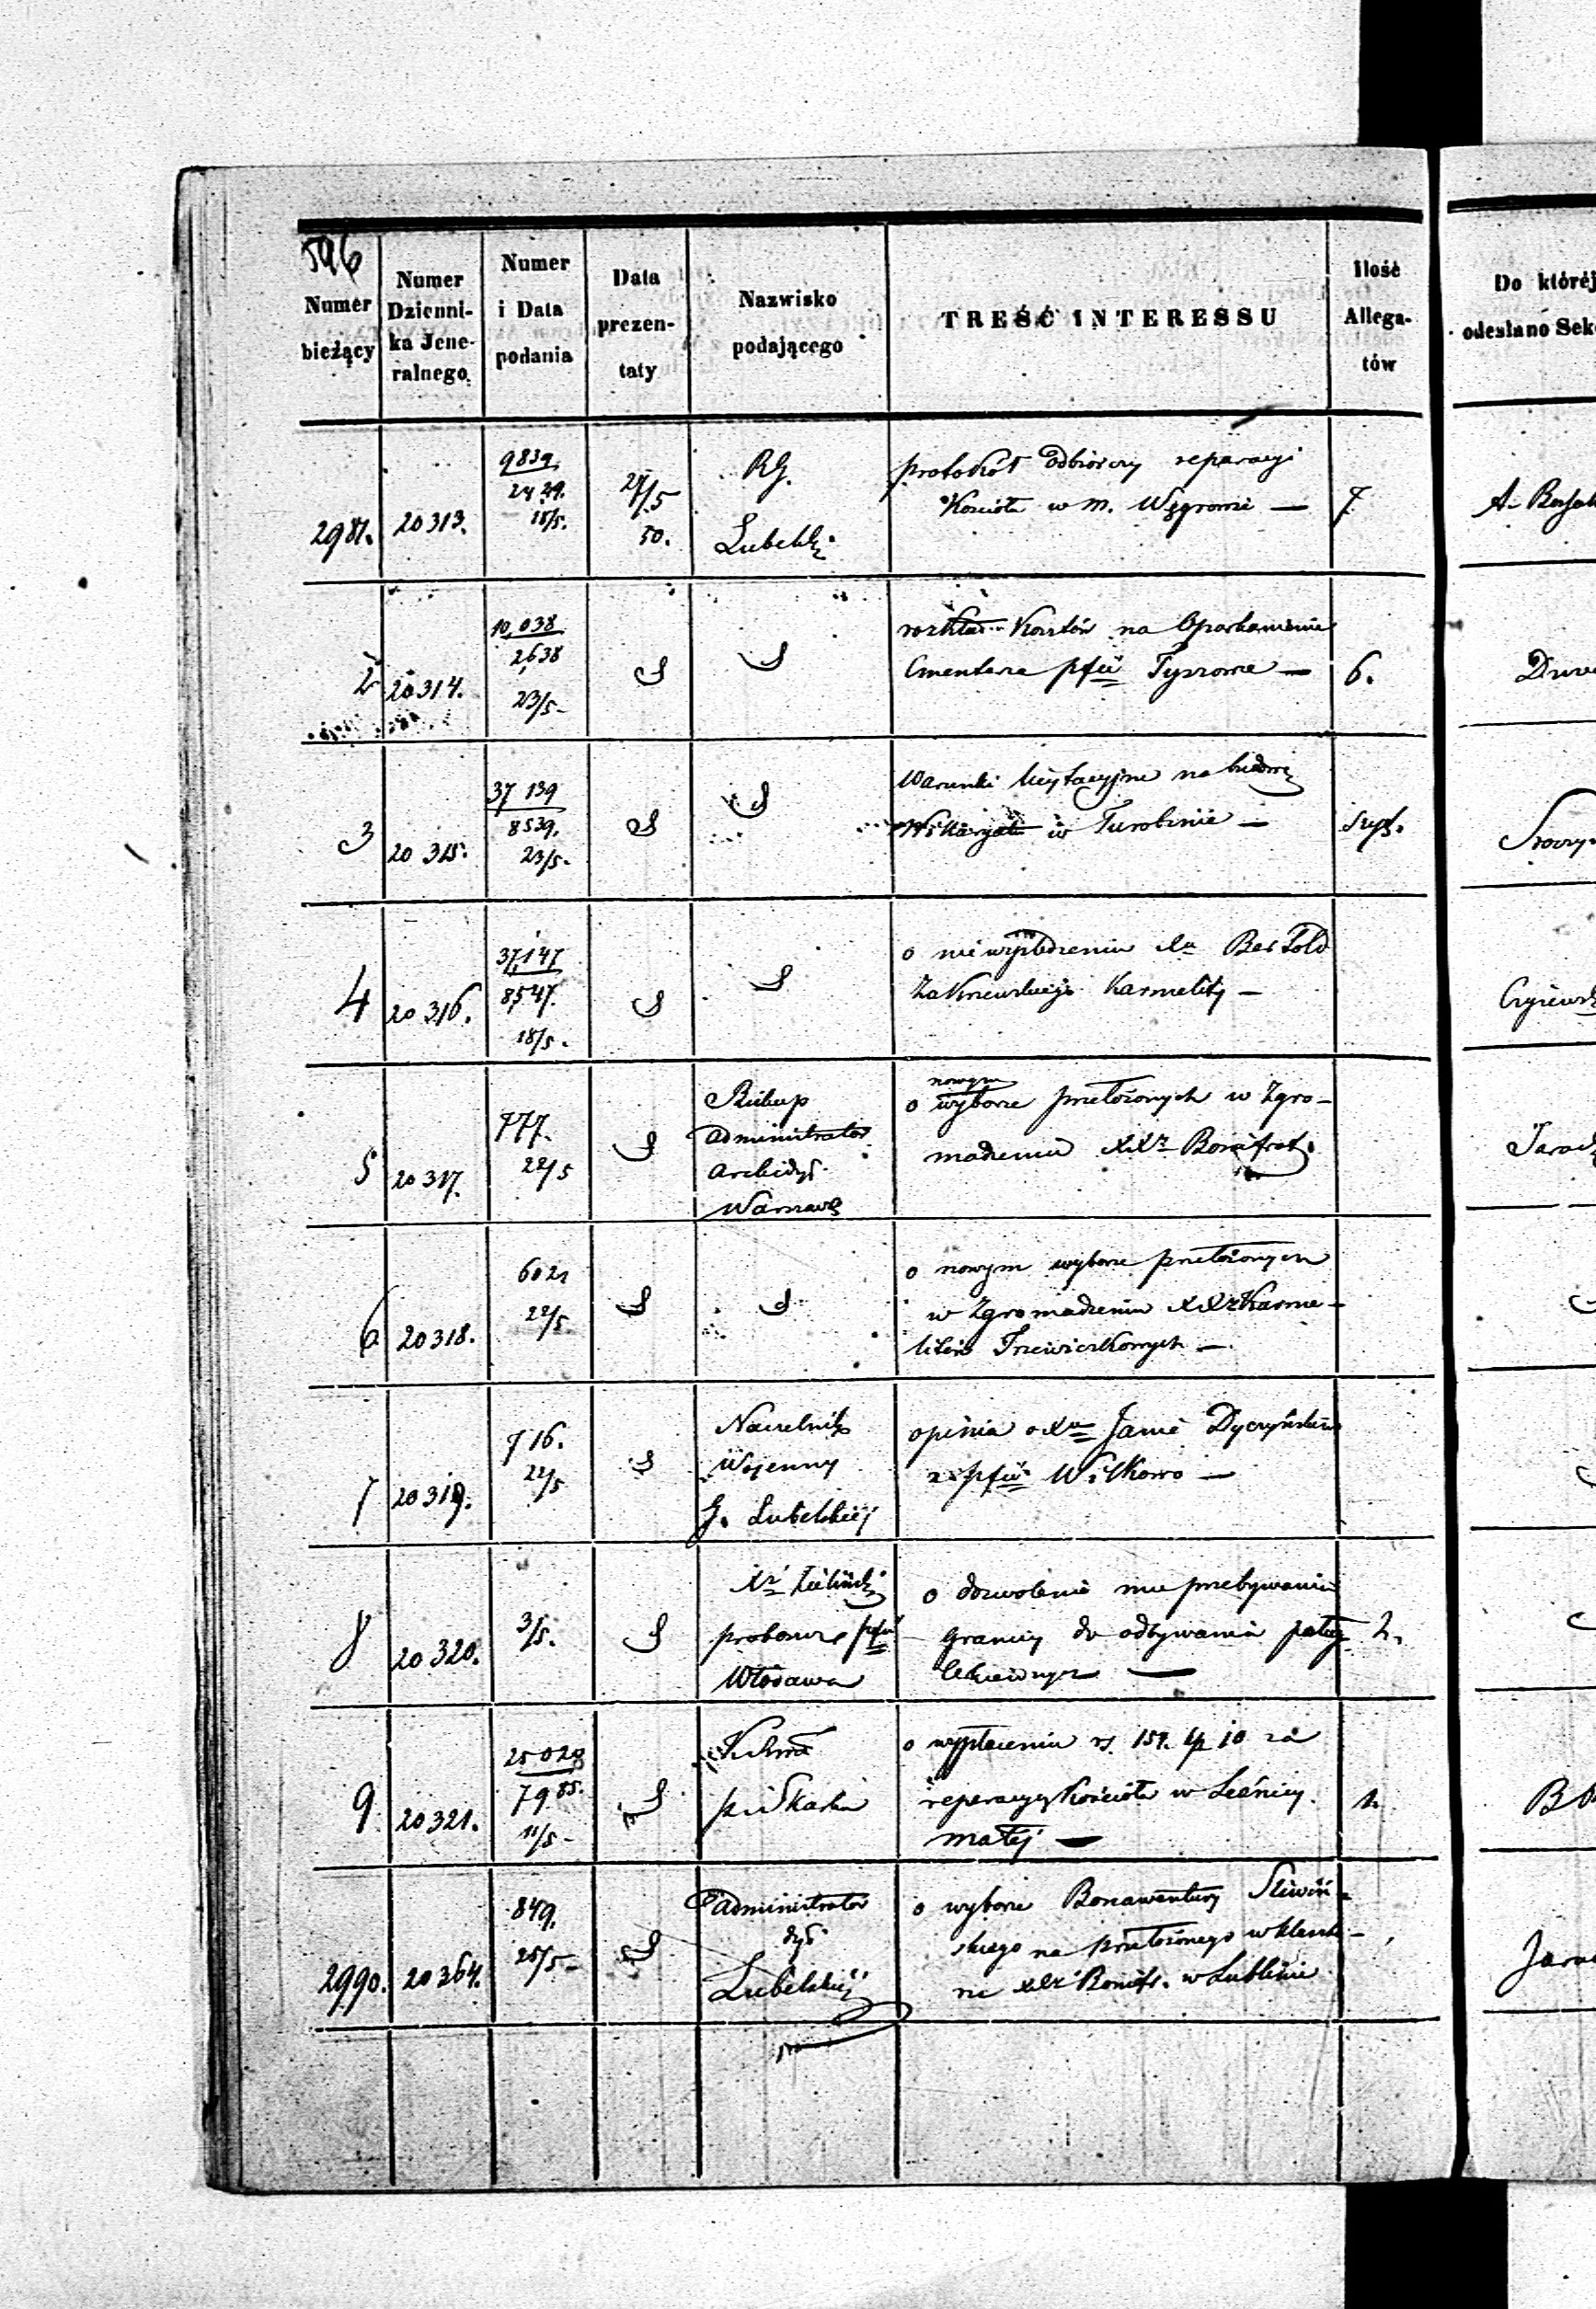 596
Numer bieżący
Numer Dzienni- ka Jene- ralnego
Numer i Data podania
Data prezen- taty
Nazwisko podającego
TREŚĆ INTERESSU
Ilość Allega- tów
Do któréj
odesłano Sek
2981. 20313. 9839 2429. 18/5. 27/5 50. RG. Lubelski
protokół odbiorczy reparacyi
Kościoła w m. Węgrowie — 7
2 20314. 10,038 2638 23/5-
rozkład Kosztów na Oparkanienie
Cmentarza pfii Tyszowce — 6.
3 20315. 37 139 8539. 23/5-
Warunki licytacyjne na budowę
Wikaryatu w Turobinie —
4 20316. 37,147 8547. 18/5.
o Bertold
Zakrzewskiego Karmelity —
5 20317. 777. 22/5
Biskup
Administrator
Archidyc.
Warszaws
nowym
o wyborze przełożonych w Zgro-
madzeniu XXr Bonifrat.
6 20318. 602 22/5
o nowym wyborze przełożonych
w Zgromadzeniu XXr Karme-
litów Trzewiczkowych —
7 20319. 716. 22/5
Naczelnik
Wojenny
G. Lubelskiej
opinia o Xu Janie
z pfii Wilkowo —
8 20320. 3/5.
Xr Zieliński
proboszcz pfii
Włodawa
o dozwolenie mu przebywania
granicy do odbywania posług 2.
9 20321. 25028 7985. 11/5-
o wypłacenie rs. 159. kp 10 za
reperacyę Kościoła w Leśnicy 1.
małej —
2990. 20364. 849. 25/5-
Administrator
dyc.
Lubelskiej
o wyborze Bonawentury Śliwiń-
skiego na przełożonego w klaszto-
rze XXr Bonifr. w Lublinie